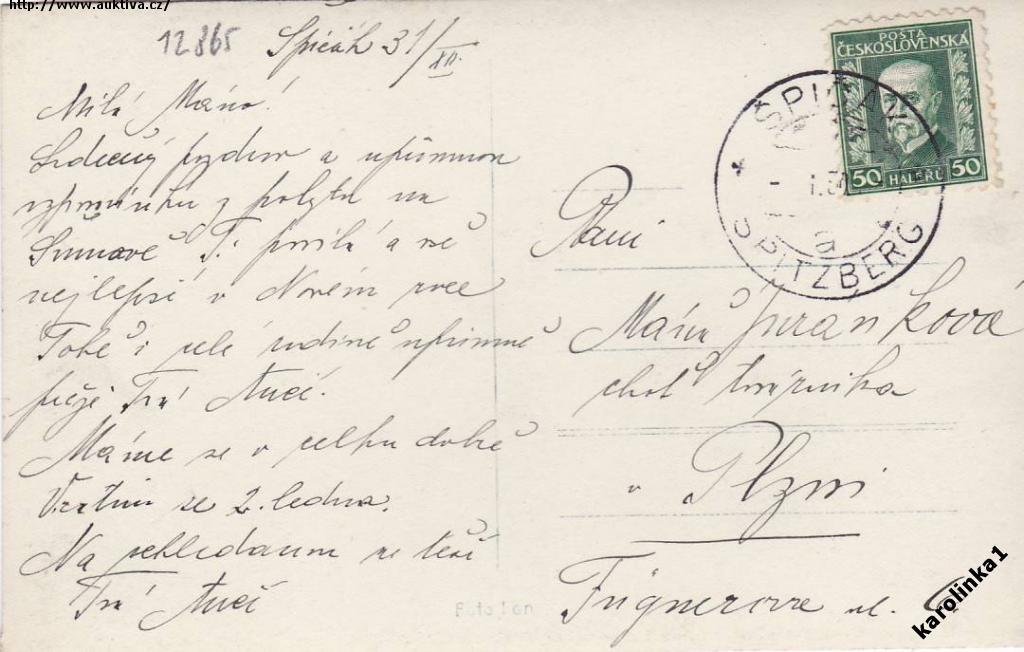 http://www.auktiva.cz/
12865 Špičák 31/XII.
Milá Máňo!
Srdečný pozdrav a upřímnou
vzpomínku z pobytu na
Šumavě Ti posílá a vše
nejlepší v Novém roce
Tobě i celé rodině upřímně
přeje Tvá
Máme se v celku dobře
Vrátím se 2. ledna.
Na shledanou se těší
Tvá
POŠTA
ČESKOSLOVENSKÁ
50 HALÉŘŮ 50
ŠPIČÁK
SPITZBERG
Paní
Máňa Juránková
choť továrníka
v Plzni
Fügnerova ul.
Fototon
karolinka1